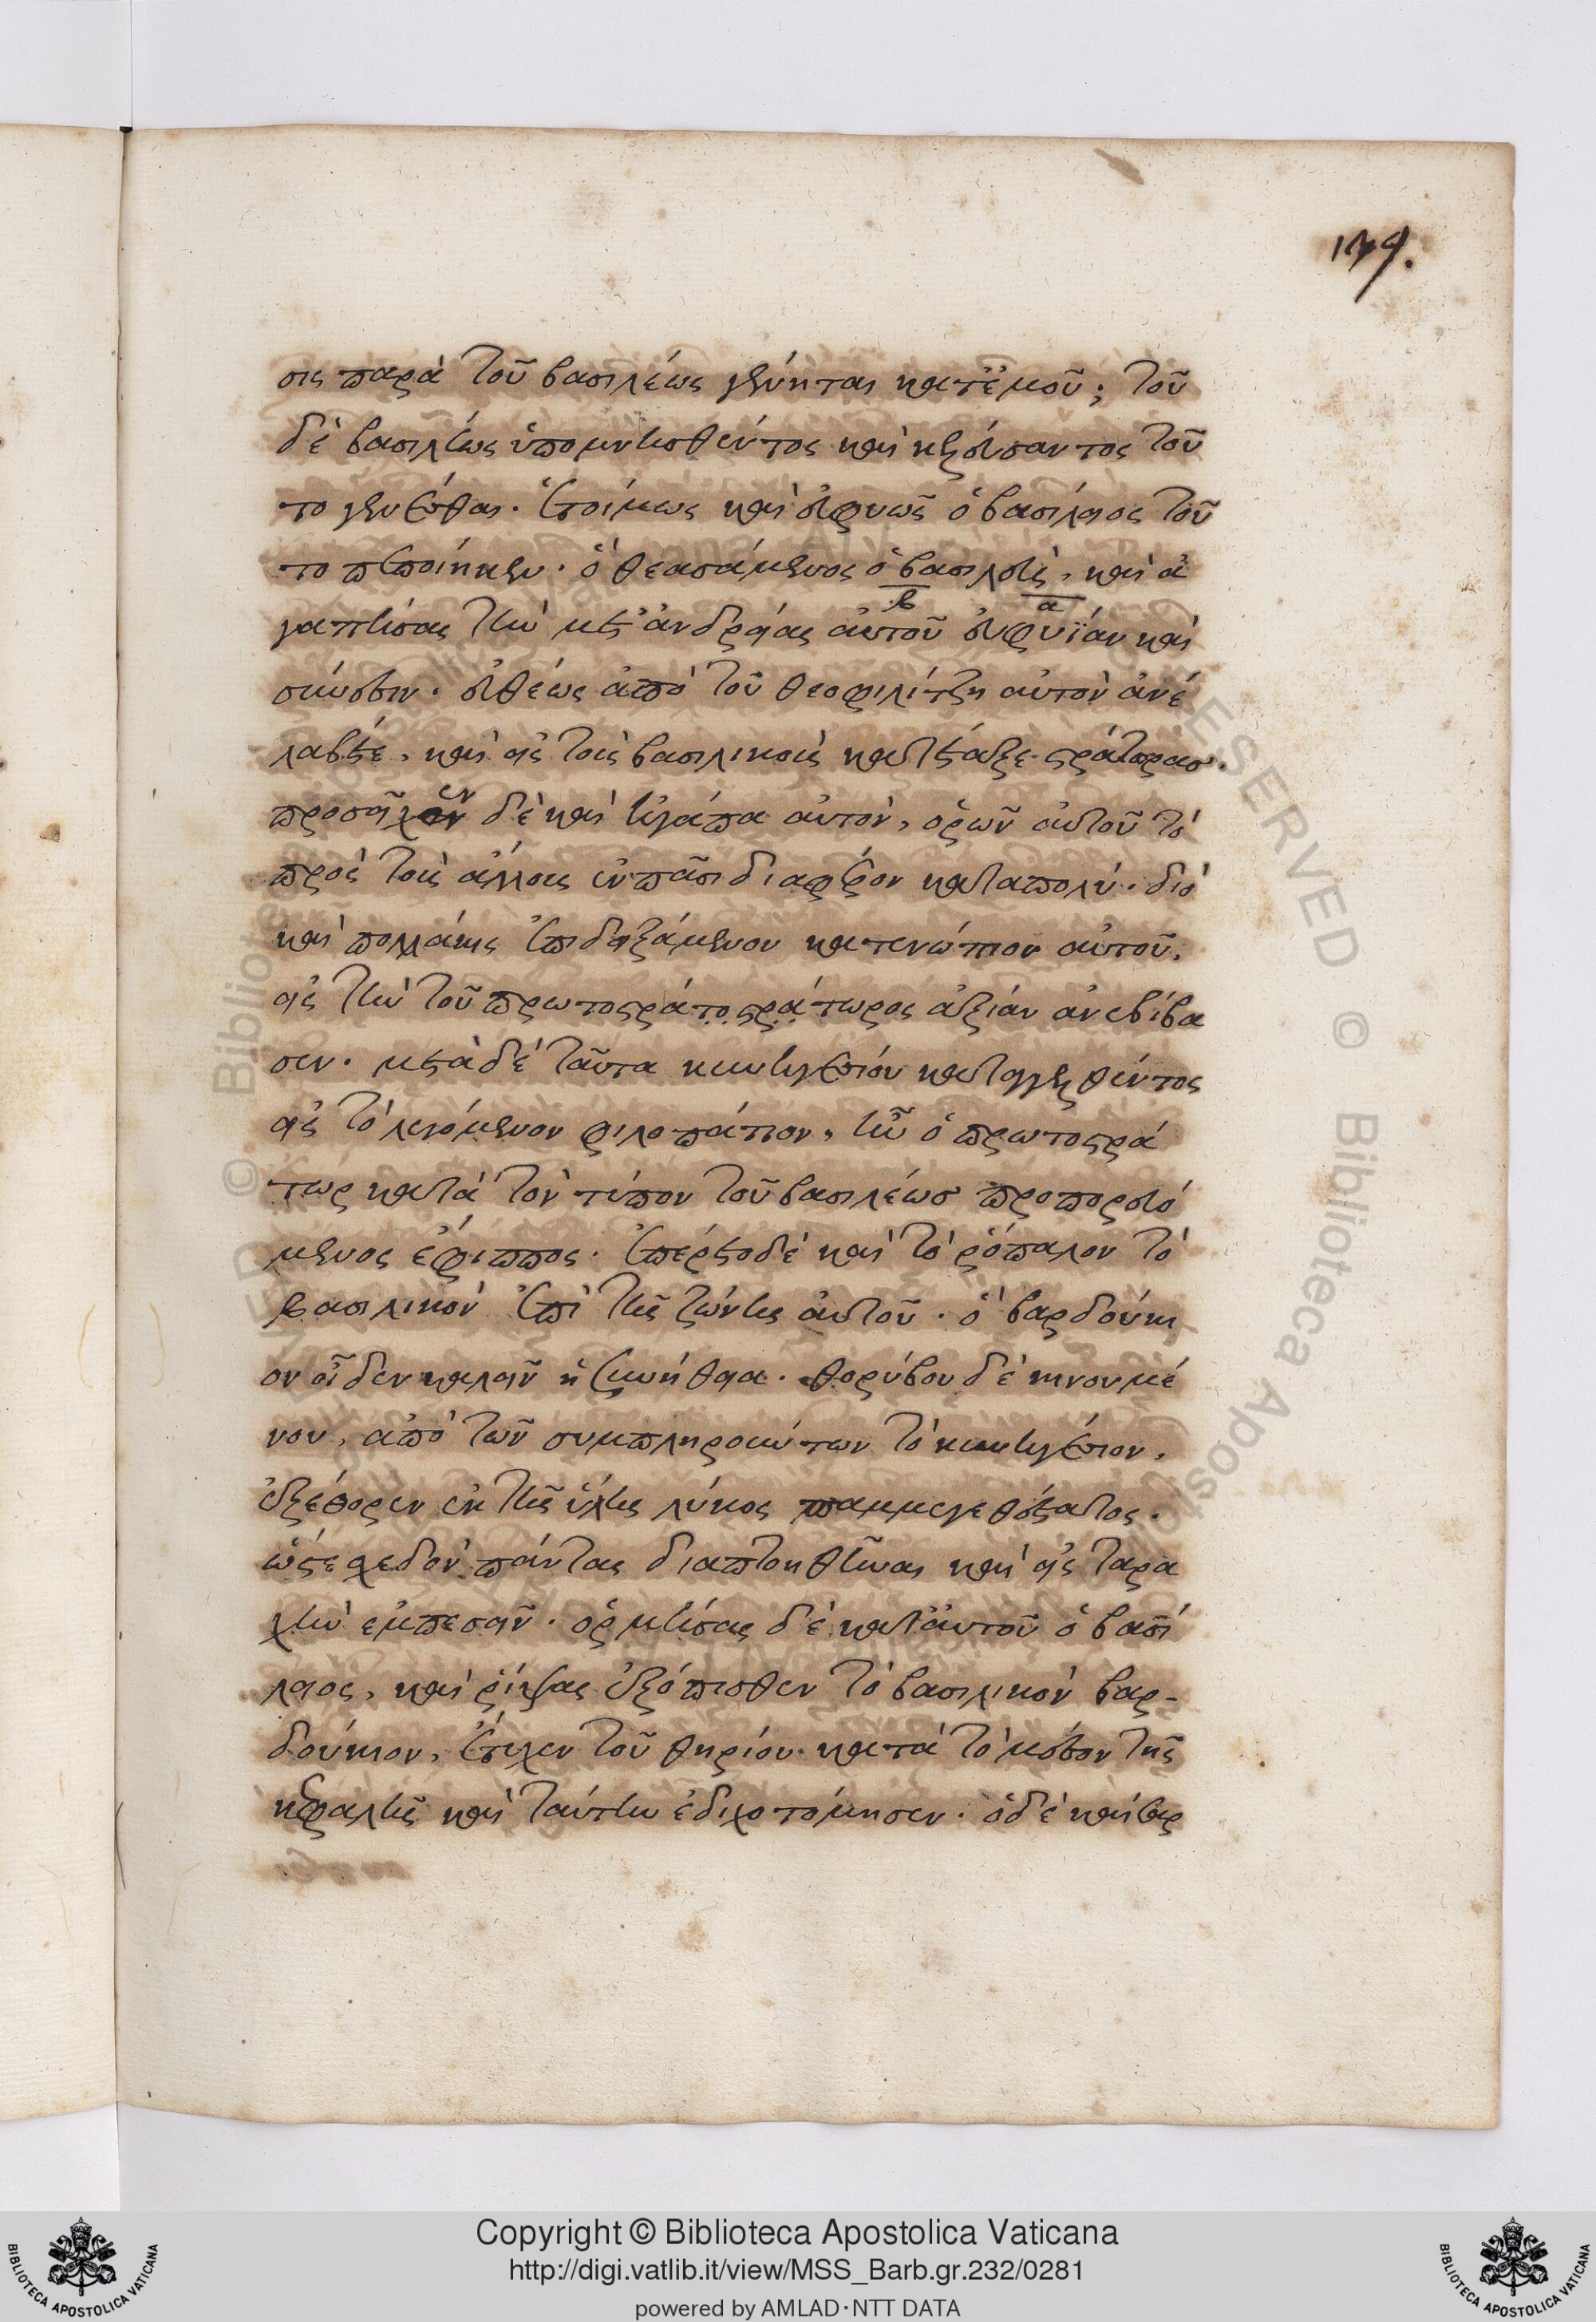 139.
σις παρὰ τοῦ βασιλέως γένηται κατ' ἐμοῦ; τοῦ
δὲ βασιλέως ὑπομνησθέντος καὶ κελεύσαντος τοῦ
το γενέσθαι. ἑτοίμως καὶ εὐφυῶς ὁ βασίλειος τοῦ
το πεποίηκεν. ὃ θεασάμενος ὁ βασιλεὺς, καὶ ἀ
β α
γαπήσας τὴν μετ' ἀνδρείας αὐτοῦ εὐφυΐαν καὶ
σύνεσιν. εὐθέως ἀπὸ τοῦ θεοφιλίτζη αὐτὸν ἀνέ
λαβετε, καὶ εἰς τοὺς βασιλικοὺς κατέταξε στράτορας.
προσεῖχεν δὲ καὶ ἠγάπα αὐτὸν, ὁρῶν αὐτοῦ τὸ
πρὸς τοὺς ἄλλους ἐν πᾶσι διαφέρον καταπολύ. διὸ
καὶ πολλάκις ἐπιδειξάμενον κατενώπιον αὐτοῦ,
εἰς τὴν τοῦ πρωτοστράτοστράτωρος ἀξίαν ἀνεβίβα
σεν. μετὰ δὲ ταῦτα κυνηγεσίου καταγγελθέντος
εἰς τὸ λεγόμενον φιλοπάτιον, ἦν ὁ πρωτοστρά
τωρ κατὰ τὸν τύπον τοῦ βασιλέωσ προπορευό
μενος ἔφιππος. ἐπέρετο δὲ καὶ τὸ ῥόπαλον τὸ
βασιλικὸν ἐπὶ τῆς ζώνης αὐτοῦ. ὃ βαρδούκι
ον οἶδεν καλεῖν ἡ συνήθεια. θορύβου δὲ κινουμέ
νου, ἀπὸ τῶν συμπληρούντων τὸ κυνηγέσιον,
ἐξέθορεν ἐκ τῆς ὕλης λύκος παμμεγεθότατος.
ὥστε σχεδὸν πάντας διαπτοηθῆναι καὶ εἰς ταρα
χὴν ἐμπεσεῖν. ὁρμήσας δὲ κατ' αὐτοῦ ὁ βασί
λειος, καὶ ῥίψας ἐξόπισθεν τὸ βασιλικὸν βαρ-
δούκιον, ἔτυχεν τοῦ θηρίου κατὰ τὸ μέσον τῆς
κεφαλῆς καὶ ταύτην ἐδιχοτόμησεν. ὁ δὲ καῖσαρ
Copyright © Biblioteca Apostolica Vaticana
http://digi.vatlib.it/view/MSS_Barb.gr.232/0281
powered by AMLAD·NTT DATA